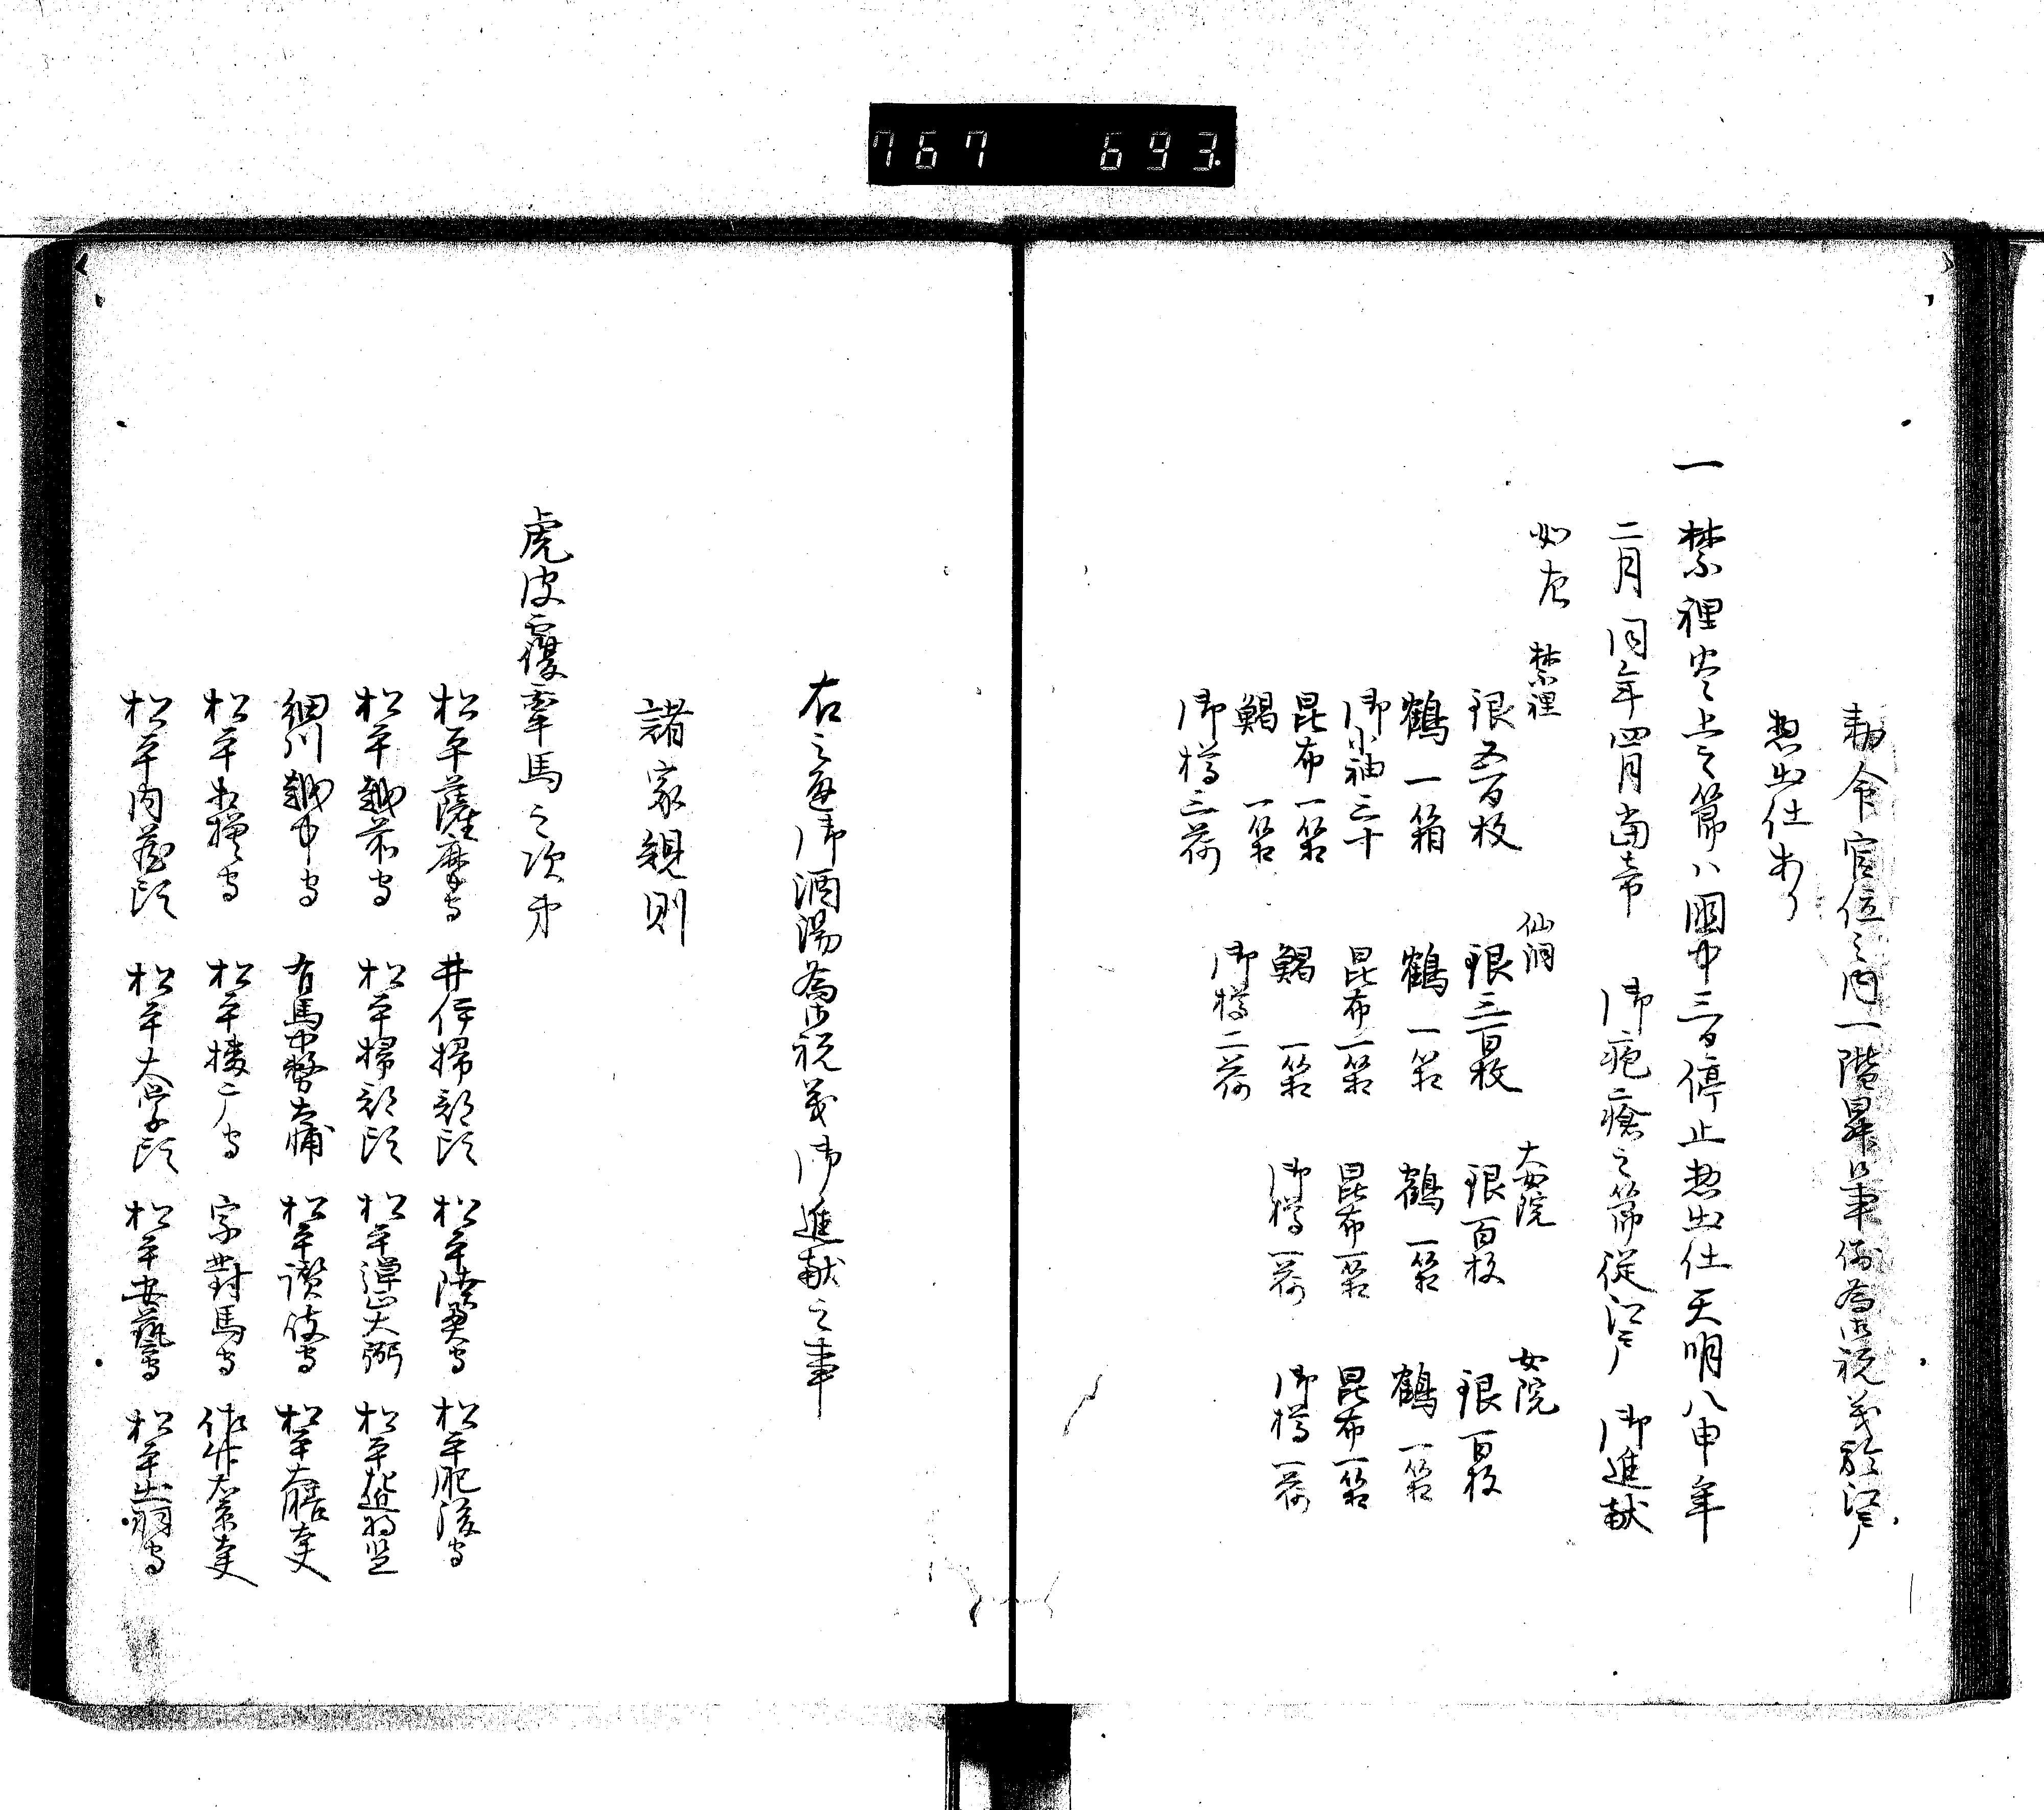 767 693
勅命官位之内一階昇叙事依為御祝義於江戸
惣出仕あり
一 禁裡炎上之節ハ国中三日停止惣出仕天明八申年
二月同年四月当帝 御疱瘡之節従江戸 御進献
如左
禁裡
銀五百枚
鶴一箱
御小袖三十
昆布一箱
鯣 一箱
御樽三荷
仙洞
銀三百枚
鶴一箱
昆布一箱
鯣 一箱
御樽二荷
大女院
銀百枚
鶴一箱
昆布一箱
御樽一荷
女院
銀百枚
鶴一箱
昆布一箱
御樽一荷
右之通御酒湯為御祝義御進献之事
諸家規則
虎皮覆牽馬之次第
松平薩摩守 井伊掃部頭 松平陸奥守 松平肥後守
松平越前守 松平掃部頭 松平弾正大弼 松平近将監
細川越中守 有馬中務大輔 松平讃岐守 松平大膳大夫
松平出雲守 松平
守 宗對馬守 佐竹右京大夫
松平内蔵頭 松平大学頭 松平安藝守 松平出羽守